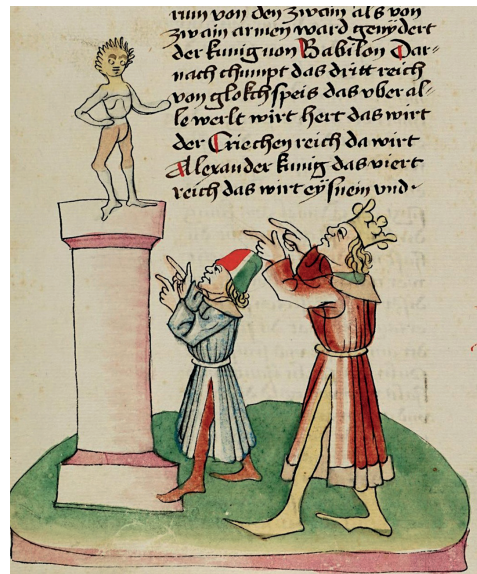 rum von den zwain als von
zwain armen ward genydert
der kunig von Babilon Dar-
nach chumpt das dritt reich
von glokhspeis das vber al-
le werlt wirt hert das wirt
der Criechen reich da wirt
Alexander kunig das viert
reich das wirt eysnem vnd